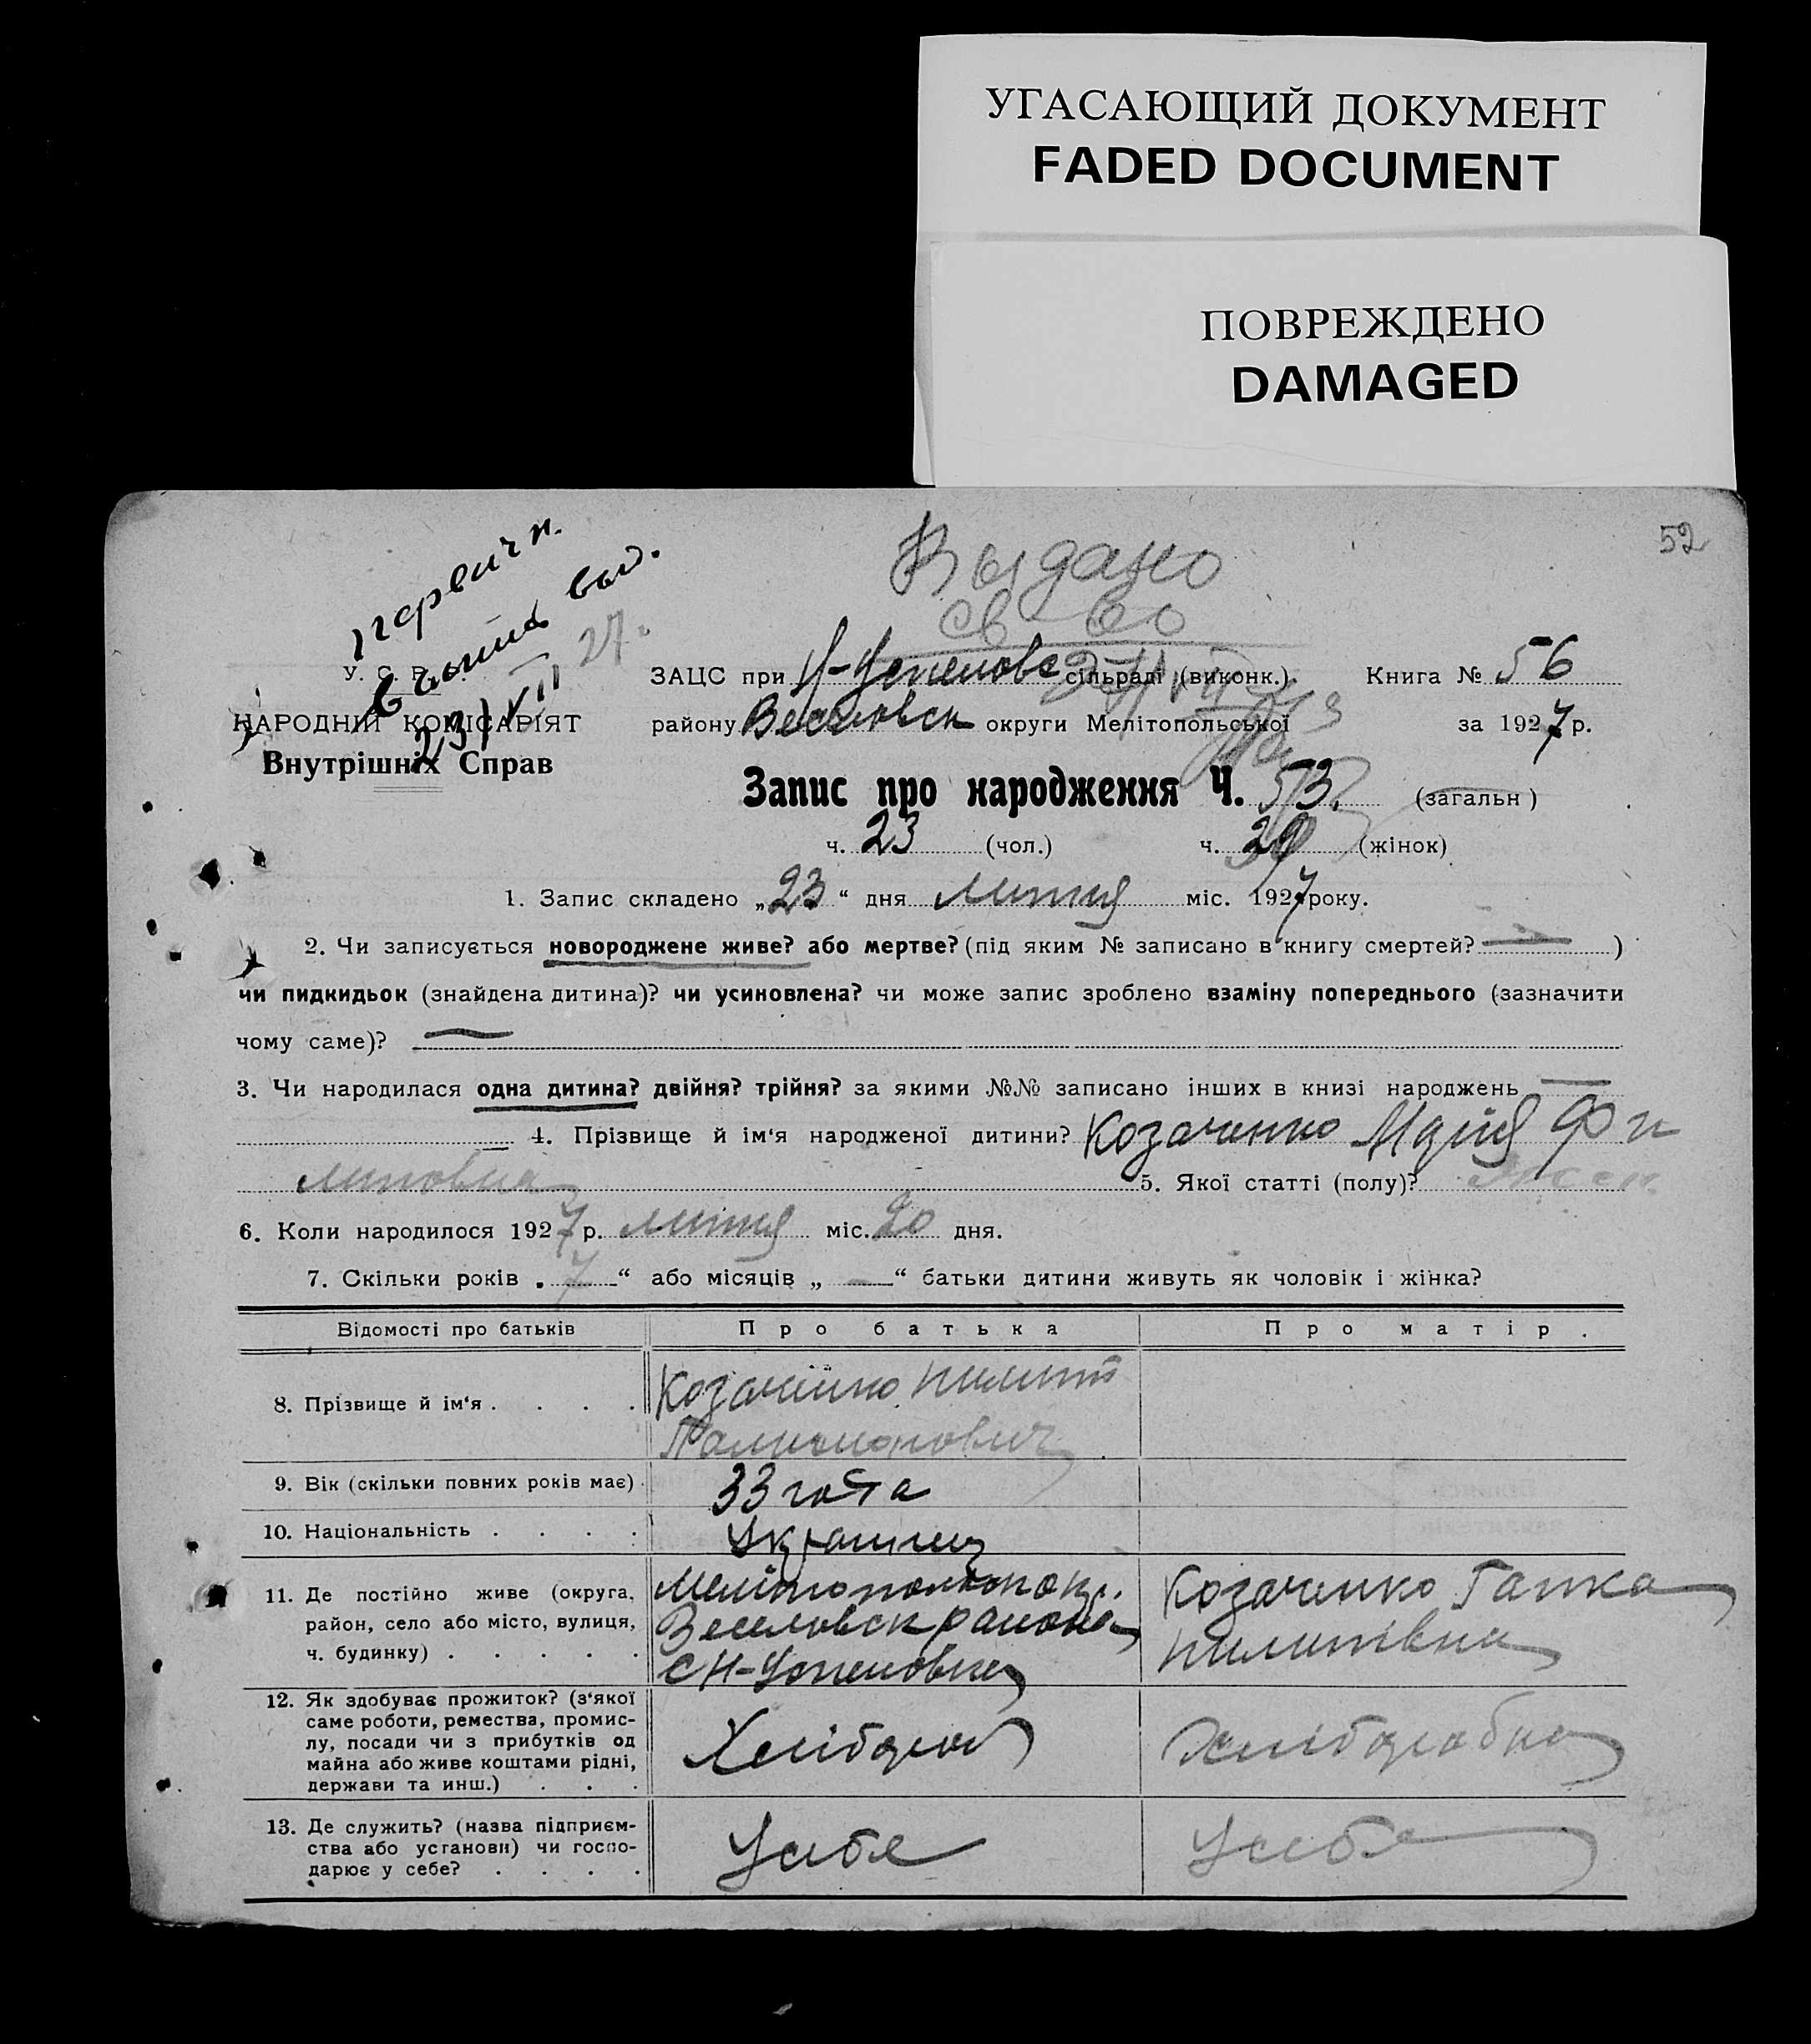 УГАСАЮЩИЙ ДОКУМЕНТ
FADED DOCUMENT
ПОВРЕЖДЕНО
DAMAGED
52
Выдано
св-во
У. С. Р.
НАРОДНІЙ КОМІСАРІЯТ
Внутрішніх Справ
23/VII 27.
ЗАЦС при сільраді (виконк.) Книга № 56
району Веселовск округи Мелітопольської за 1927 р.
Запис про народження Ч. 53. (загальн)
ч. 23 (чол.) ч. (жінок)
1. Запис складено „23“ дня міс. 1927 року.
2. Чи записується новороджене живе? або мертве? (під яким № записано в книгу смертей? — )
чи пидкидьок (знайдена дитина)? чи усиновлена? чи може запис зроблено взаміну попереднього (зазначити
чому саме)? —
3. Чи народилася одна дитина? двійня? трійня? за якими №№ записано інших в книзі народжень —
4. Прізвище й ім‘я народженої дитини? Козаченко Марія Фи
липовна 5. Якої статті (полу)? жен.
6. Коли народилося 1927 р. міс. 20 дня.
7. Скільки років „7“ або місяців „ — “ батьки дитини живуть як чоловік і жінка?
Відомості про батьків Про батька Про матір.
8. Прізвище й ім‘я . . . . Козаченко Пилип
9. Вік (скільки повних років має) 33 года
10. Національність . . . . Украинец
11. Де постійно живе (округа, Козаченко Гапка
район, село або місто, вулиця, Веселовск района
ч. будинку) . . . . . Пилипівна
12. Як здобуває прожиток? (з‘якої
саме роботи, ремества, промис-
лу, посади чи з прибутків од Хлібороб
майна або живе коштами рідні,
держави та инш.) . . .
13. Де служить? (назва підприєм-
ства або установи) чи госпо- У себе У себе
дарює у себе? . . . .